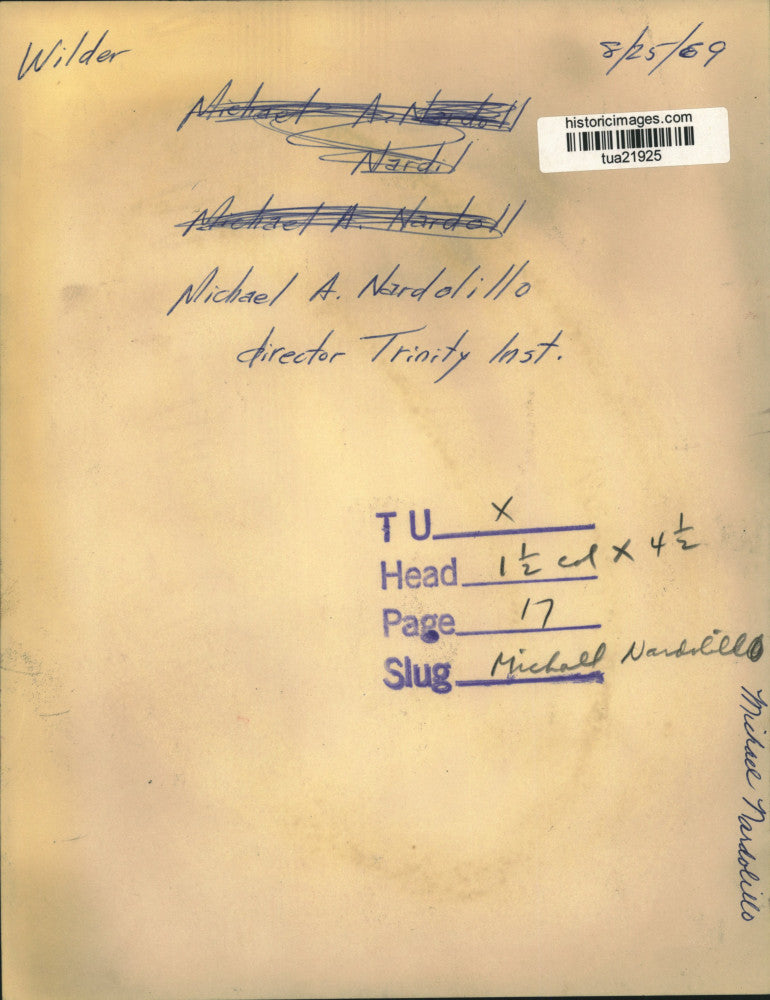 Wilder
8/25/69
Michael A. Nardoll
Nardil
Michael A. Nardoll
Michael A. Nardolillo
director Trinity Inst.
historicimages.com
tua21925
T U X
Head 1 1/2 col X 4 1/2
Page 17
Slug Michael Nardolillo
Michael Nardolillo